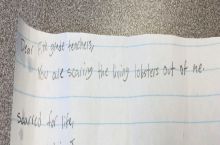 Dear 5th grade teachers,
You are scaring the living lobsters out of me.
Scarred for life,